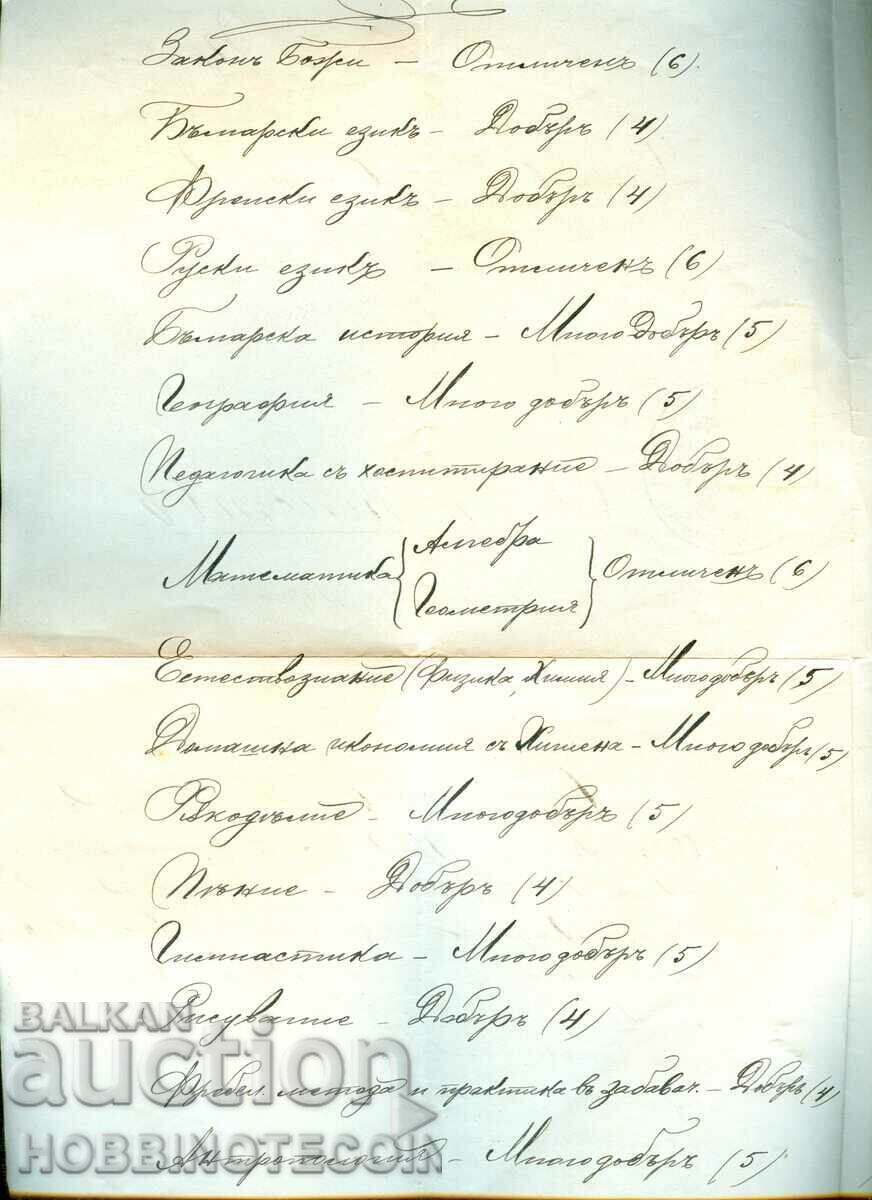 Законъ Божи — Отличенъ (6).
Български езикъ — Добъръ (4)
Френски езикъ — Добъръ (4)
Руски езикъ — Отличенъ (6)
Българска история — Много Добъръ (5)
География — Много добъръ (5)
Педагогика съ хоспитирание — Добъръ (4)
Математика { Алгебра
Геометрия } Отличенъ (6)
Естествознание (Физика, Химия) — Много добъръ (5)
Домашна икономия съ Хигиена — Много добъръ (5)
Рѫкодѣлие — Многодобъръ (5)
Пѣние — Добъръ (4)
Гимнастика — Многодобъръ (5)
Рисувание — Добъръ (4)
Фребел. метода и практика въ забавач. — Добъръ (4)
Антропология — Многодобъръ (5)
BALKAN
auction
HOBBINOTECOM